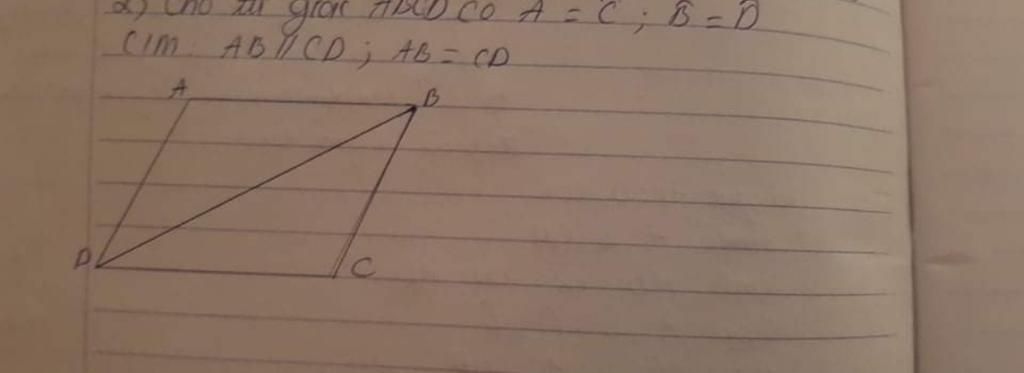 2) Cho tứ giác ABCD có Â = Ĉ ; B̂ = D̂
C/m : AB // CD ; AB = CD
A
B
D
C